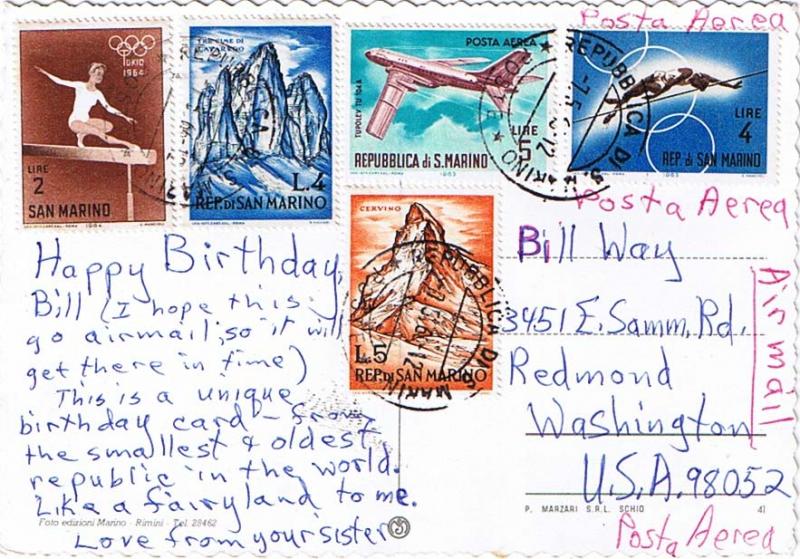 Posta Aerea
TOKIO
1964
LIRE
2
SAN MARINO
1964
TRE CIME DI
LAVAREDO
L.4
REP. DI SAN MARINO
POSTA AEREA
TUPOLEV TU 104A
LIRE
5
REPUBBLICA di S. MARINO
1963
LIRE
4
REP. DI SAN MARINO
1963
REPUBBLICA DI S. MARINO
CERVINO
L.5
REP. DI SAN MARINO
Posta Aerea
Happy Birthday,
Bill (I hope this
go airmail, so it will
get there in time)
This is a unique
birthday card – from
the smallest & oldest
republic in the world.
Like a fairyland to me.
Love from your sister
Foto edizioni Marino - Rimini - Tel. 28462
Bill Way
3451 E. Samm. Rd.
Redmond
Washington
U.S.A. 98052
Air mail
P. MARZARI S.R.L. SCHIO
41
Posta Aerea